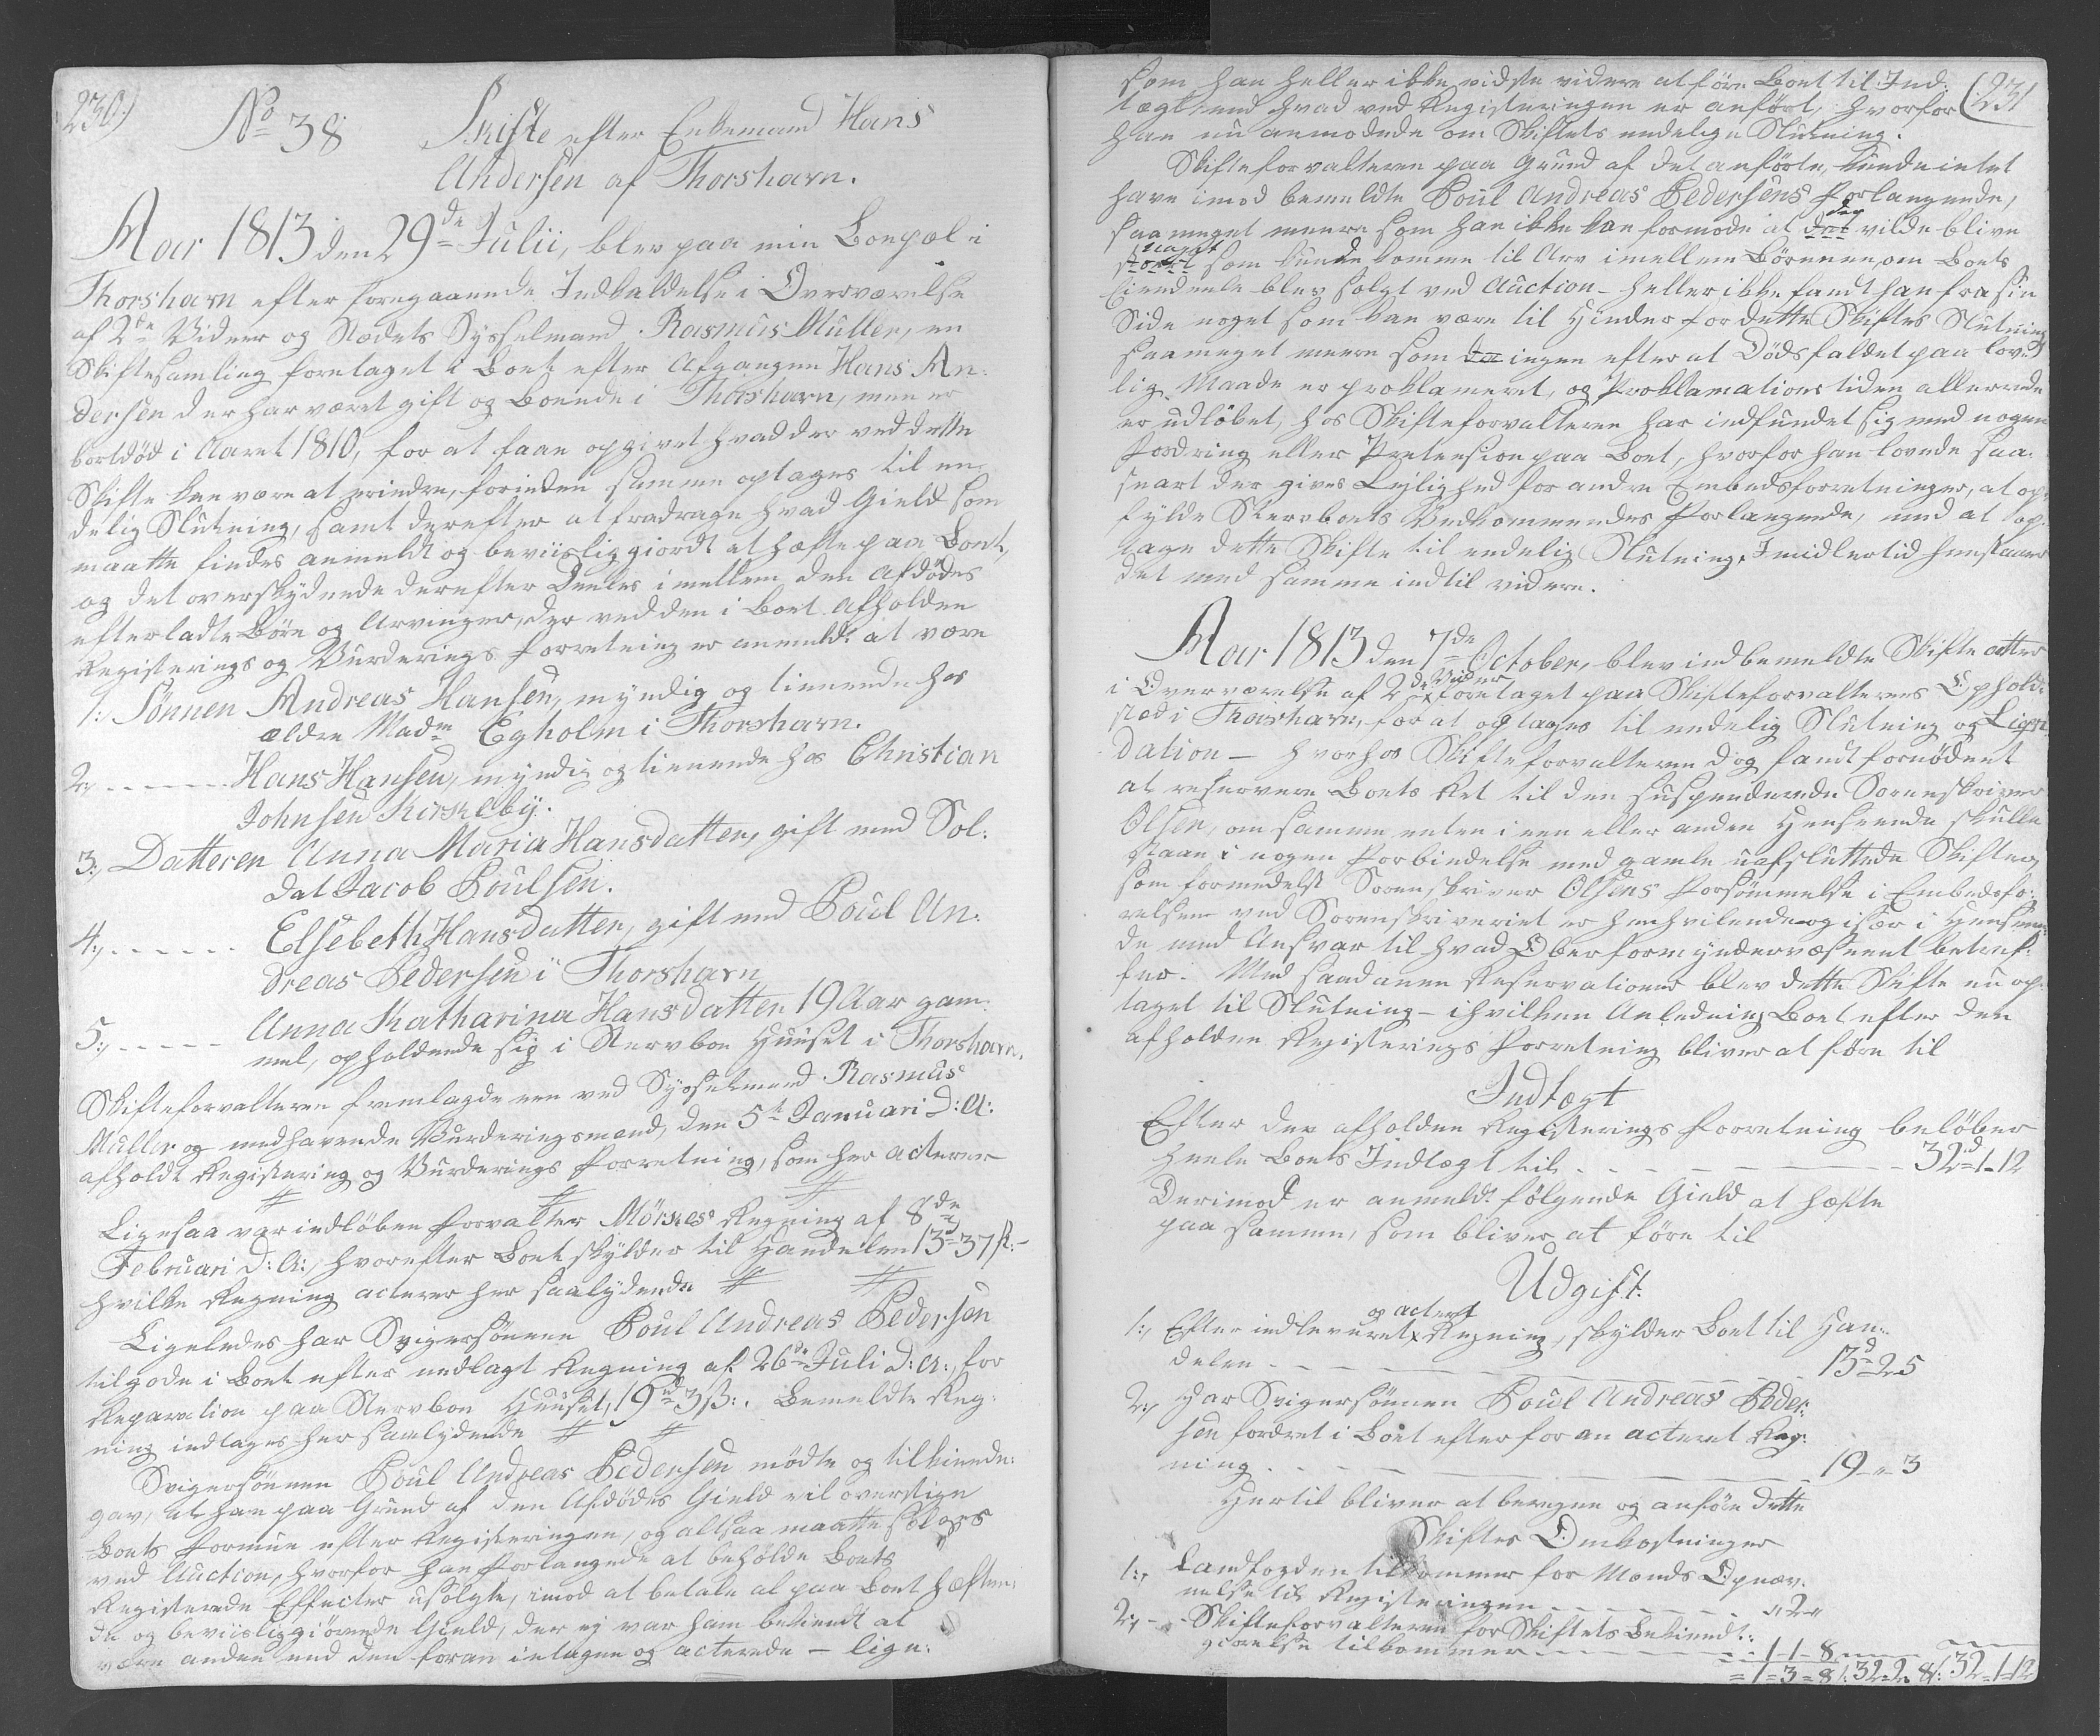 230)
No 38 Skifte efter Enkemand Hans
Andersen af Thorshavn.
Aar 1813 den 29de Julii, blev paa min Boepæl i
Thorshavn efter foregaaende Indkaldelse i Overværelse
af 2de Vidner og Stædets Sysselmand Rasmus Müller, en
Skiftesamling foretaget i Boet efter Afgangne Hans An-
dersen der har været gift og Boende i Thorshavn, men er
bortdød i Aaret 1810, for at faae opgivet hvad der ved dette
Skifte kan være at erindre, forinden samme optages til en-
delig Slutning, samt derefter at fradrage hvad Gield som
maatte findes anmeldt og beviisliggiordt at hæfte paa Boet,
og det overskydende derefter Deeles imellem den Afdødes
efterladte Børn og Arvinger, der ved den i Boet afholdne
Registerings og Vurderings Forretning er anmeldt at være
1: Sønnen Andreas Hansen, myndig og tienende hos
ældre Madm Egholm i Thorshavn.
2, ------ Hans Hansen, myndig og tienende hos Christian
Johnsen Kirkebÿ.
3, Datteren Anna Maria Hansdatter, gift med Sol-
dat Jacob Poulsen.
4, ------ Elsebeth Hansdatter, gift med Poul An-
dreas Pedersen i Thorshavn
5, ----- Anna Katharina Hansdatter 19 Aar gam-
mel, opholdende sig i Stervboe Huuset i Thorshavn.
Skifteforvalteren fremlagde een ved Sysselmand Rasmus
Müller og medhavende Vurderingsmænd, den 5te Januari D: A:
afholdt Registering og Vurderings Forretning, som her acteres
# # #
Ligesaa var indløben Forvalter Mörkes Regning af 8de
Februari D: A:, hvorefter Boet skylder til Handelen 13d 37 s.-
hvilke Regning acteres her saalydende # #
Ligeledes har Svigersønnen Poul Andreas Pedersen
tilgode i Boet efter nedlagt Regning af 26de Juli D: A:, for
Reparation paa Stervboe Huuset, 19d 3 s:. Bemeldte Reg-
ning indtages her saalydende # #
Svigersønnen Poul Andreas Pedersen mødte og tilkiende-
gav, at han paa Grund af den Afdødes Gield vil overstige
Boets Formue efter Registeringen, og altsaa maatte sælges
ved Auction, hvorfor han forlangede at beholde Boets
Registerede Effecter usolgte, imod at betale al paa Boet hæften-
de og beviisliggiørende Gield, der ej var ham bekiendt at
være anden end den foran intagne og acterede - lige-
231
som han heller ikke vidste videre at føre Boet til Ind-
tægt end hvad ved Registeringen er anført, hvorfor
han nu anmodede om Skiftets endelige Slutning.
Skifteforvalteren paa Grund af det anførte, kunde intet
have imod bemeldte Poul Andreas Pedersens Forlangende,
saa meget meere som han ikke kan formode at det der vilde blive
noget som kunde komme til Arv imellem Børnene, om Boets
Eiendeele blev solgt ved Auction - heller ikke fandt han fra sin
Side noget som kan være til Hinder for dette Skiftes Slutning
saameget meere som ingen efter at Dødsfaldet paa lov-
lig Maade er proklameret, og Proklamations tiden allerede
er udløbet, hos Skifteforvalteren har indfundet sig med nogen
Fordring eller Pretension paa Boet, hvorfor han lovede saa-
snart der gives Lejlighed for andre Embedsforretninger, at op-
fylde Stervboets Vedkommendes Forlangende, med at op-
tage dette Skifte til endelig Slutning, Imidlertid henstaaer
det med samme indtil videre.
Aar 1813 den 7de October, blev indbemeldte Skifte atter
i Overværelse af 2de Vidner foretaget paa Skifteforvalterens Opholds
sted i Thorshavn, for at optages til endelig Slutning og Liqvi-
dation - hvorhos Skifteforvalteren dog fandt fornødent
at reservere Boets Ret til den suspenderede Sorenskriver
Olsen, om samme enten i een eller anden Henseende skulle
staae i nogen Forbindelse med gamle uafsluttede Skifter,
som formedelst Sorenskriver Olsens Forsømmelse i Embedsfø-
relsen ved Sorenskriveriet er henhvilende og især i Henseen-
de med Ansvar til hvad Oberformyndervæsenet betref-
fer. Med saadanne Reservationer blev dette Skifte nu op-
taget til Slutning - i hvilken Anledning Boet efter den
afholdne Registerings Forretning bliver at føre til
Indtægt
Efter den afholdne Registerings Forretning beløber
heele Boets Indtægt til ------ 32d-1-12
Derimod er anmeldt følgende Gield at hæfte
paa samme, som bliver at føre til
Udgift.
1:, Efter indleveret og acteret Regning, skylder Boet til Han-
delen ------ 13d-2-5
2:, Har Svigersønnen Poul Andreas Peder-
sen fordret i Boet efter foran acteret Reg-
ning ------ 19-"-3
Hertil bliver at beregne og anføre dette
Skiftes Omkostninger
1:, Landfogden tilkommer for Mænds Opnæv-
nelse til Registeringen ------ "-2-"
2:, - Skifteforvalteren for Skiftets Bekiendt-
giørelse tilkommer ------ 1-1-8
= 1-3-8 /: 32-2-8/: 32-1-12